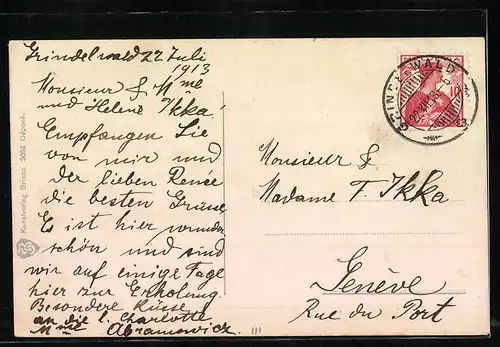 Grindelwald 22 Juli
1913
Monsieur & Mme
und Helene Ikka.
Empfangen Sie
von mir und
der lieben Renée
die besten Grüsse
Es ist hier wunder
schön und sind
wir auf einige Tage
hier zur Erholung.
Besondere Küsse
an die l. Charlotte
Mme Abramowicz.
Kunstverlag Brienz 3052 Déposé.
GRINDELWALD
10
Monsieur &
Madame F. Ikka
Genève
Rue du Port